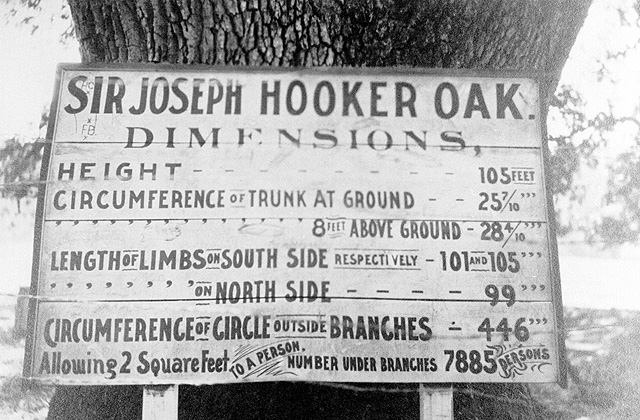 SIR JOSEPH HOOKER OAK.
DIMENSIONS,
HEIGHT - - - - - - - 105 FEET
CIRCUMFERENCE OF TRUNK AT GROUND - - 25 7/10 '''
' ' ' ' ' ' ' ' ' ' 8 FEET ABOVE GROUND - 28 4/10 '''
LENGTH OF LIMBS ON SOUTH SIDE RESPECTIVELY - 101 AND 105 '''
' ' ' ' ' ' ' ON NORTH SIDE - - - - 99 '''
CIRCUMFERENCE OF CIRCLE OUTSIDE BRANCHES - 446 '''
Allowing 2 Square Feet TO A PERSON, NUMBER UNDER BRANCHES 7885 PERSONS